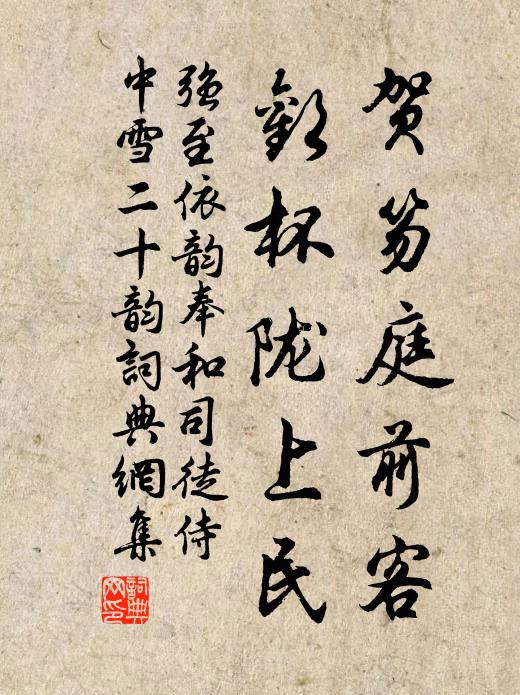 贺笏庭前客
欢杯陇上民
强至依韵奉和司徒侍
中雪二十韵詞典網集
詞典网印